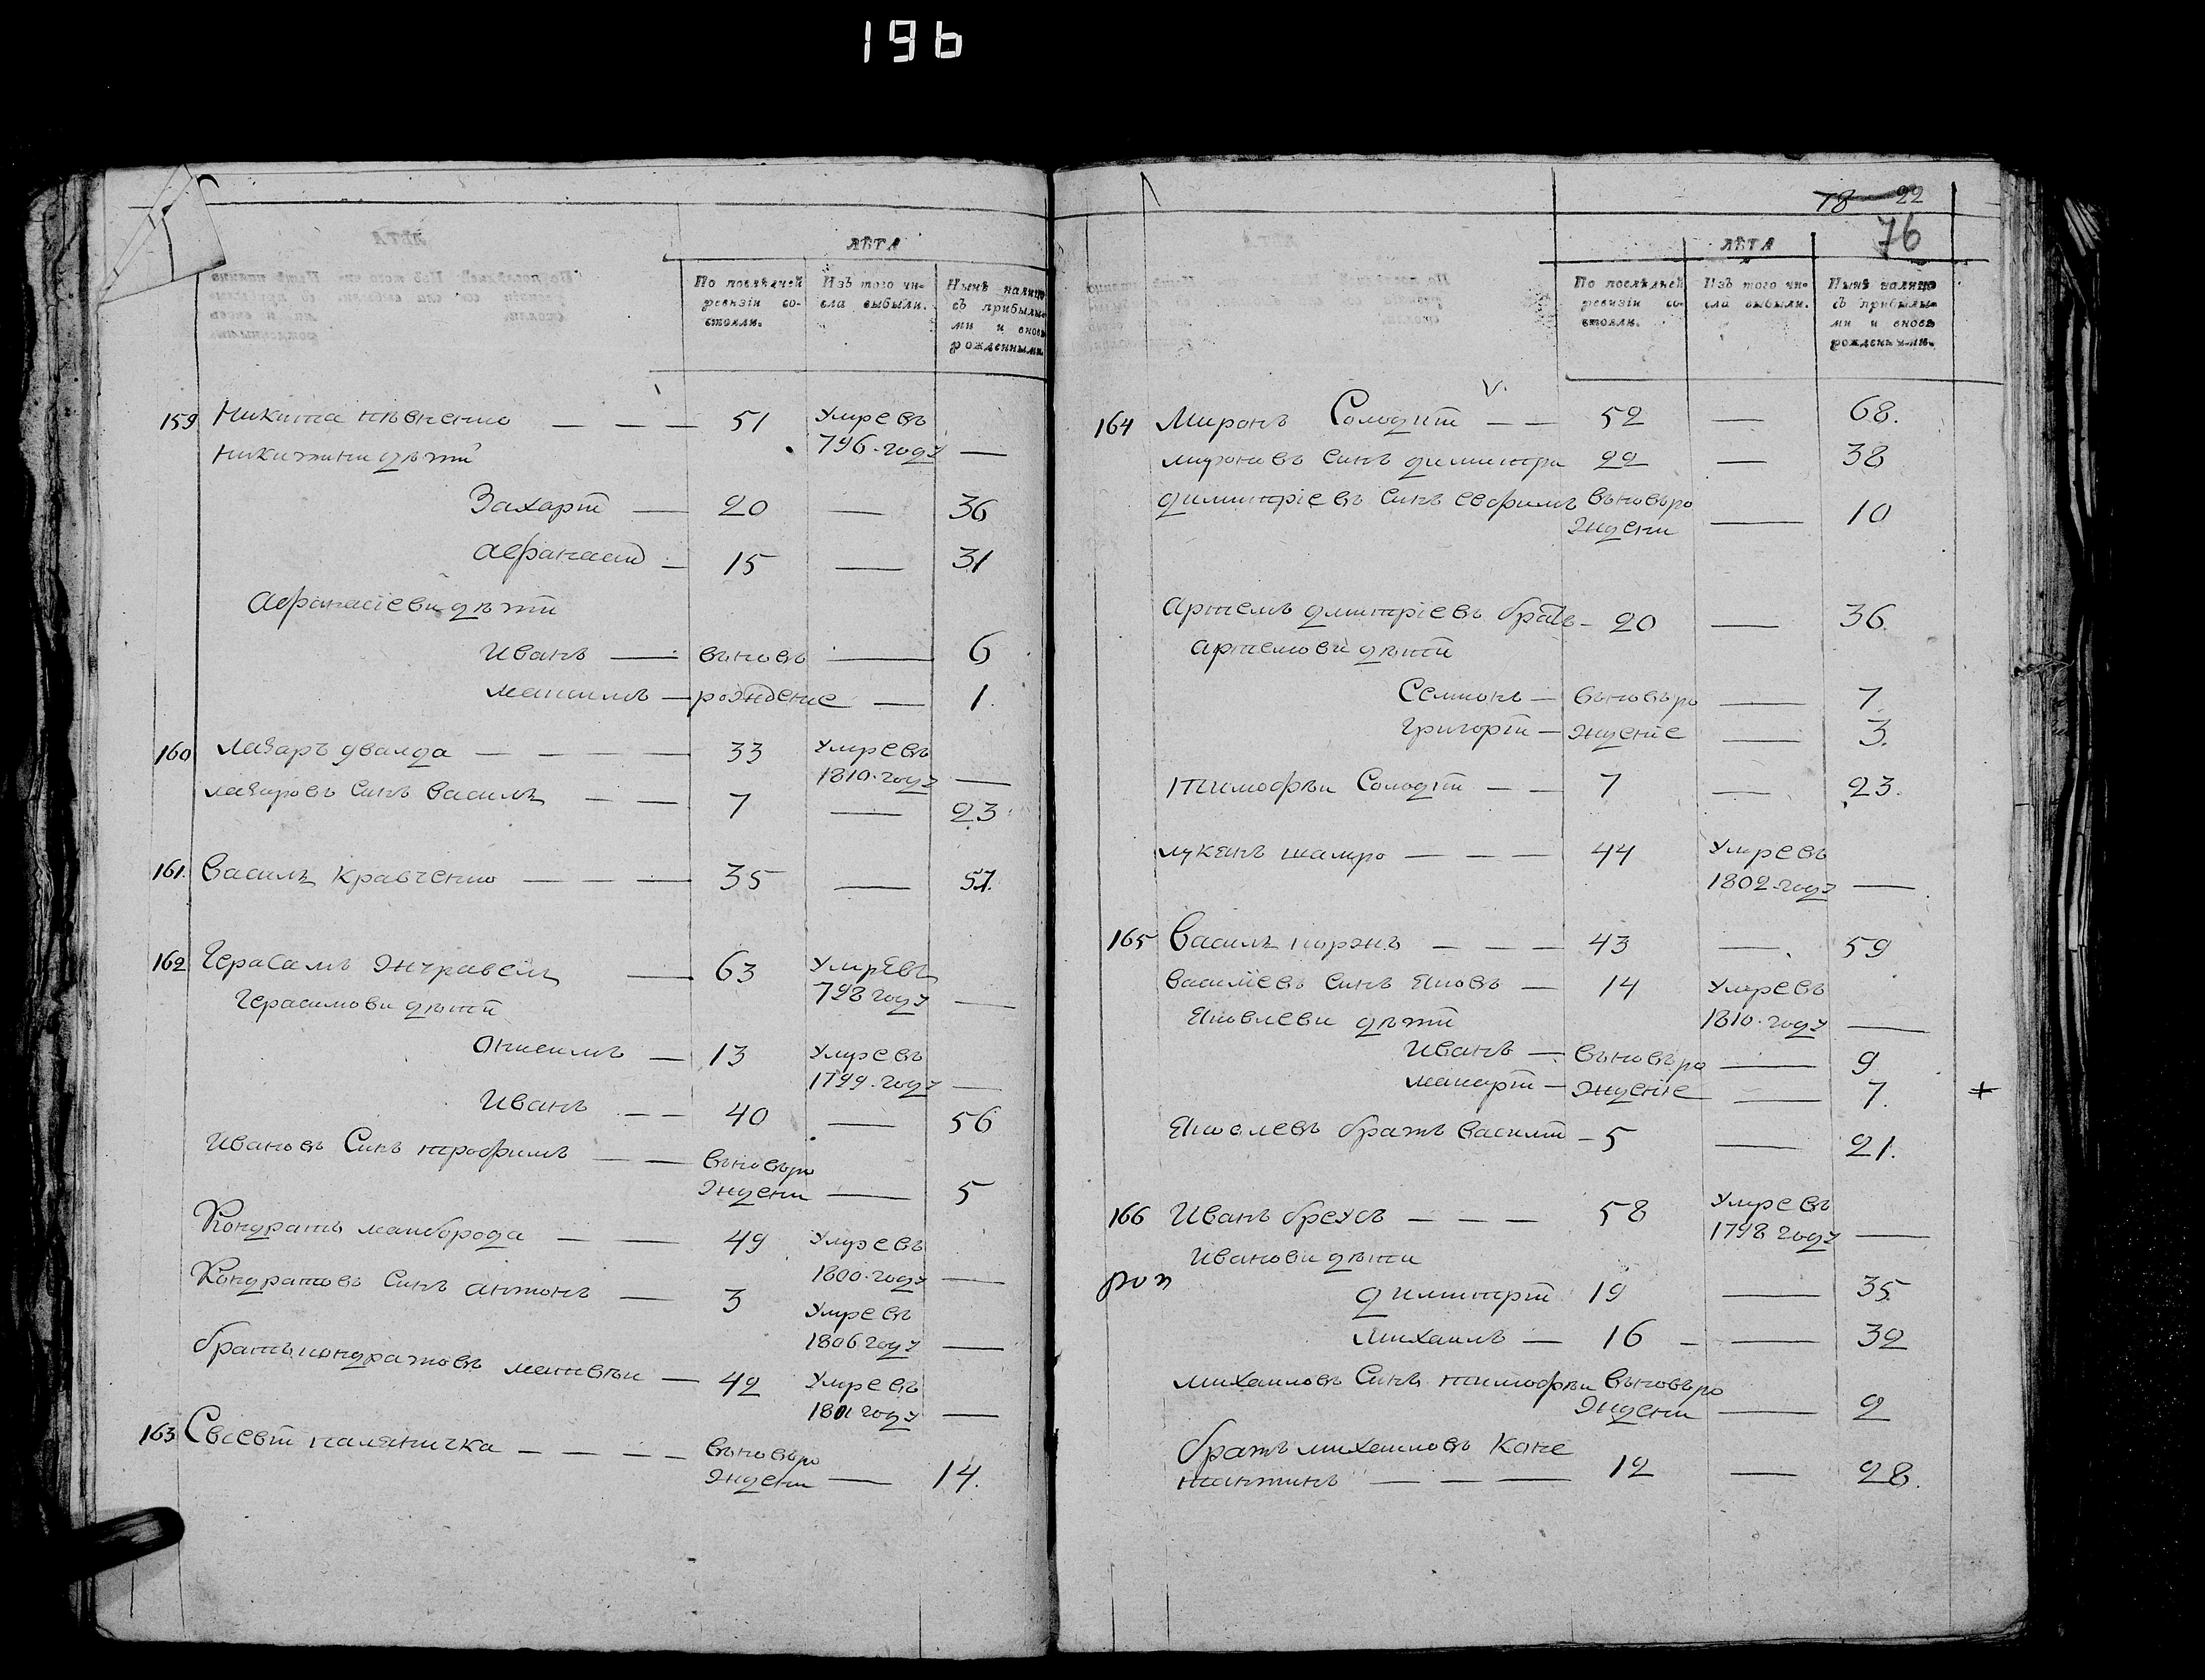 196
ЛѢТА
По послѣдней ревизіи состояли.
Изъ того числа выбыли.
Нынѣ налицо съ прибылыми и вновь рожденными.
159 Никита пѣвненко — — — 51 Умревъ
796 году —
Никитини дѣти
Захарій — 20 — 36
Афанасій — 15 — 31
Афанасіеви дѣти
Иванъ — вьновъ — 6
Максимъ — рожденіе — 1.
160 Лазаръ двалда — — — — 33 Умревъ
1810 году —
Лазаровъ Синъ Василь — — 7 — 23
161. Василь Кравченко — — — 35 — 51.
162 Герасимъ Журавель — 63 Умревъ
798 году —
Герасимови дѣти
Онисимъ — 13 Умревъ
1799 году —
Иванъ — — 40 — 56
Ивановъ Синъ трофимъ — — вьновъро
ждени — 5
Кондратъ майборода — — 49 Умревъ
1800 году —
Кондратовъ Синъ антонъ — 3 Умревъ
1806 году —
братъ кондратовъ матвѣи — 42 Умревъ
1801 году —
163 Евсевій паляничка — — — — вьновъро
ждени — 14.
78 22
76
ЛѢТА
По послѣдней ревизіи состояли.
Изъ того числа выбыли.
Нынѣ налицо съ прибылыми и вновь рожденными.
164 Миронъ Солодій — — 52 — 68.
мироновъ синъ димитри 22 — 38
димитріевъ синъ Евфимъ вьновъро
ждени — 10
Артемъ дмитріевъ братъ — 20 — 36.
артемови дѣти
Семионъ — вьновъро — 7
Григорій — ждение — 3.
тимофѣи Солодій — — 7 — 23.
лукянъ шамро — — — 44 Умревъ
1802 году —
165 Василь коржъ — — — 43 — 59
василіевъ синъ Яковъ — 14 Умревъ
Яковлеви дѣти 1810 году —
Иванъ — вьновъро — 9
макарій — ждение — 7.
Яковлевъ братъ василій — 5 — 21.
166 Иванъ брехсъ — — — 58 Умревъ
1798 году —
Иванови дѣти
димитрій 19 — 35
михаилъ — 16 — 32
михаиловъ Синъ тимофѣи вьновъро
ждени — 2
братъ михаиловъ Конс
тантинъ — — — 12 — 28.